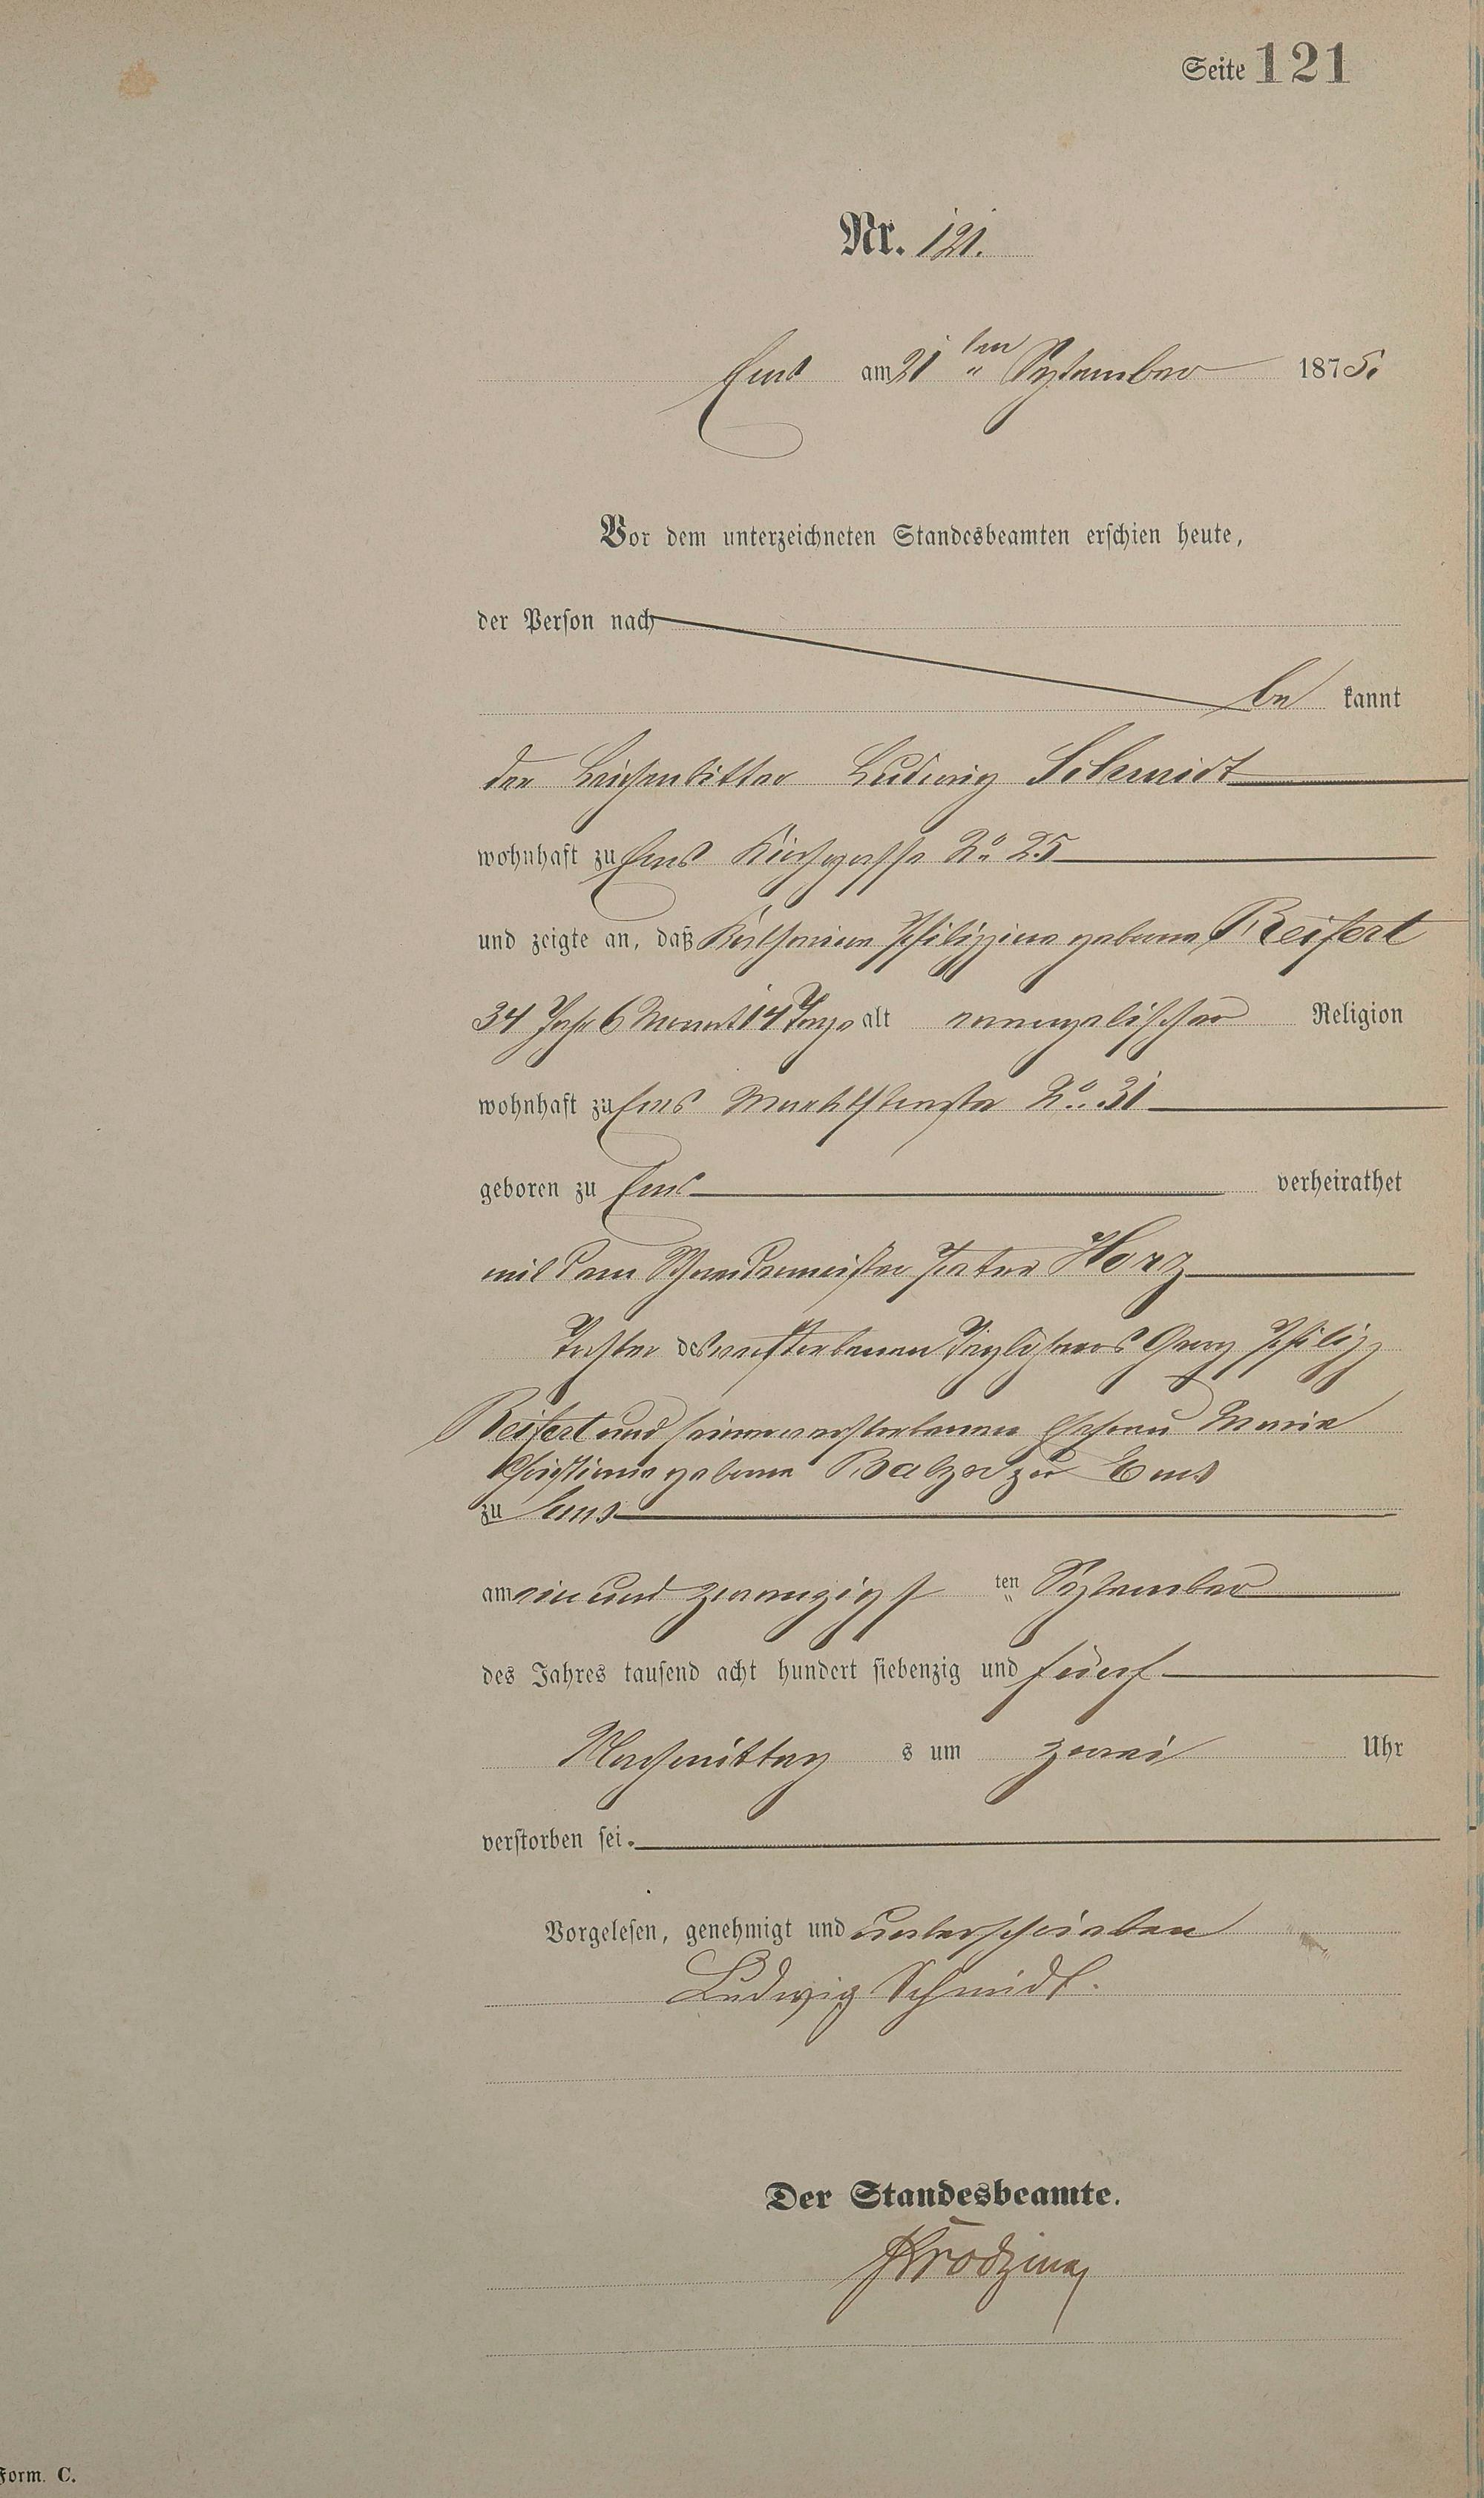 Seite 121
Nr. 121.
Ems am 21 ten September 1875.
Vor dem unterzeichneten Standesbeamten erschien heute,
der Person nach
be kannt
der Leichenbitter Ludwig Schmidt
wohnhaft zu Ems Kirchgasse No 25
und zeigte an, daß Katharina Philippina geborene Reifert
34 Jahr 6 Monat 14 Tage alt evangelischer Religion
wohnhaft zu Ems Marktstraße No 31
geboren zu Ems verheirathet
mit dem Schneidermeister Peter Horz
Tochter des verstorbenen Taglöhners Georg Philipp
Reifert und seiner verstorbenen Ehefrau Maria
Christiana geborene Balzer zu Ems
zu Ems
am ein und zwanzigst ten September
des Jahres tausend acht hundert siebenzig und fünf
Nachmittag s um zwei Uhr
verstorben sei.
Vorgelesen, genehmigt und unterschrieben
Ludwig Schmidt.
Der Standesbeamte.
Form. C.